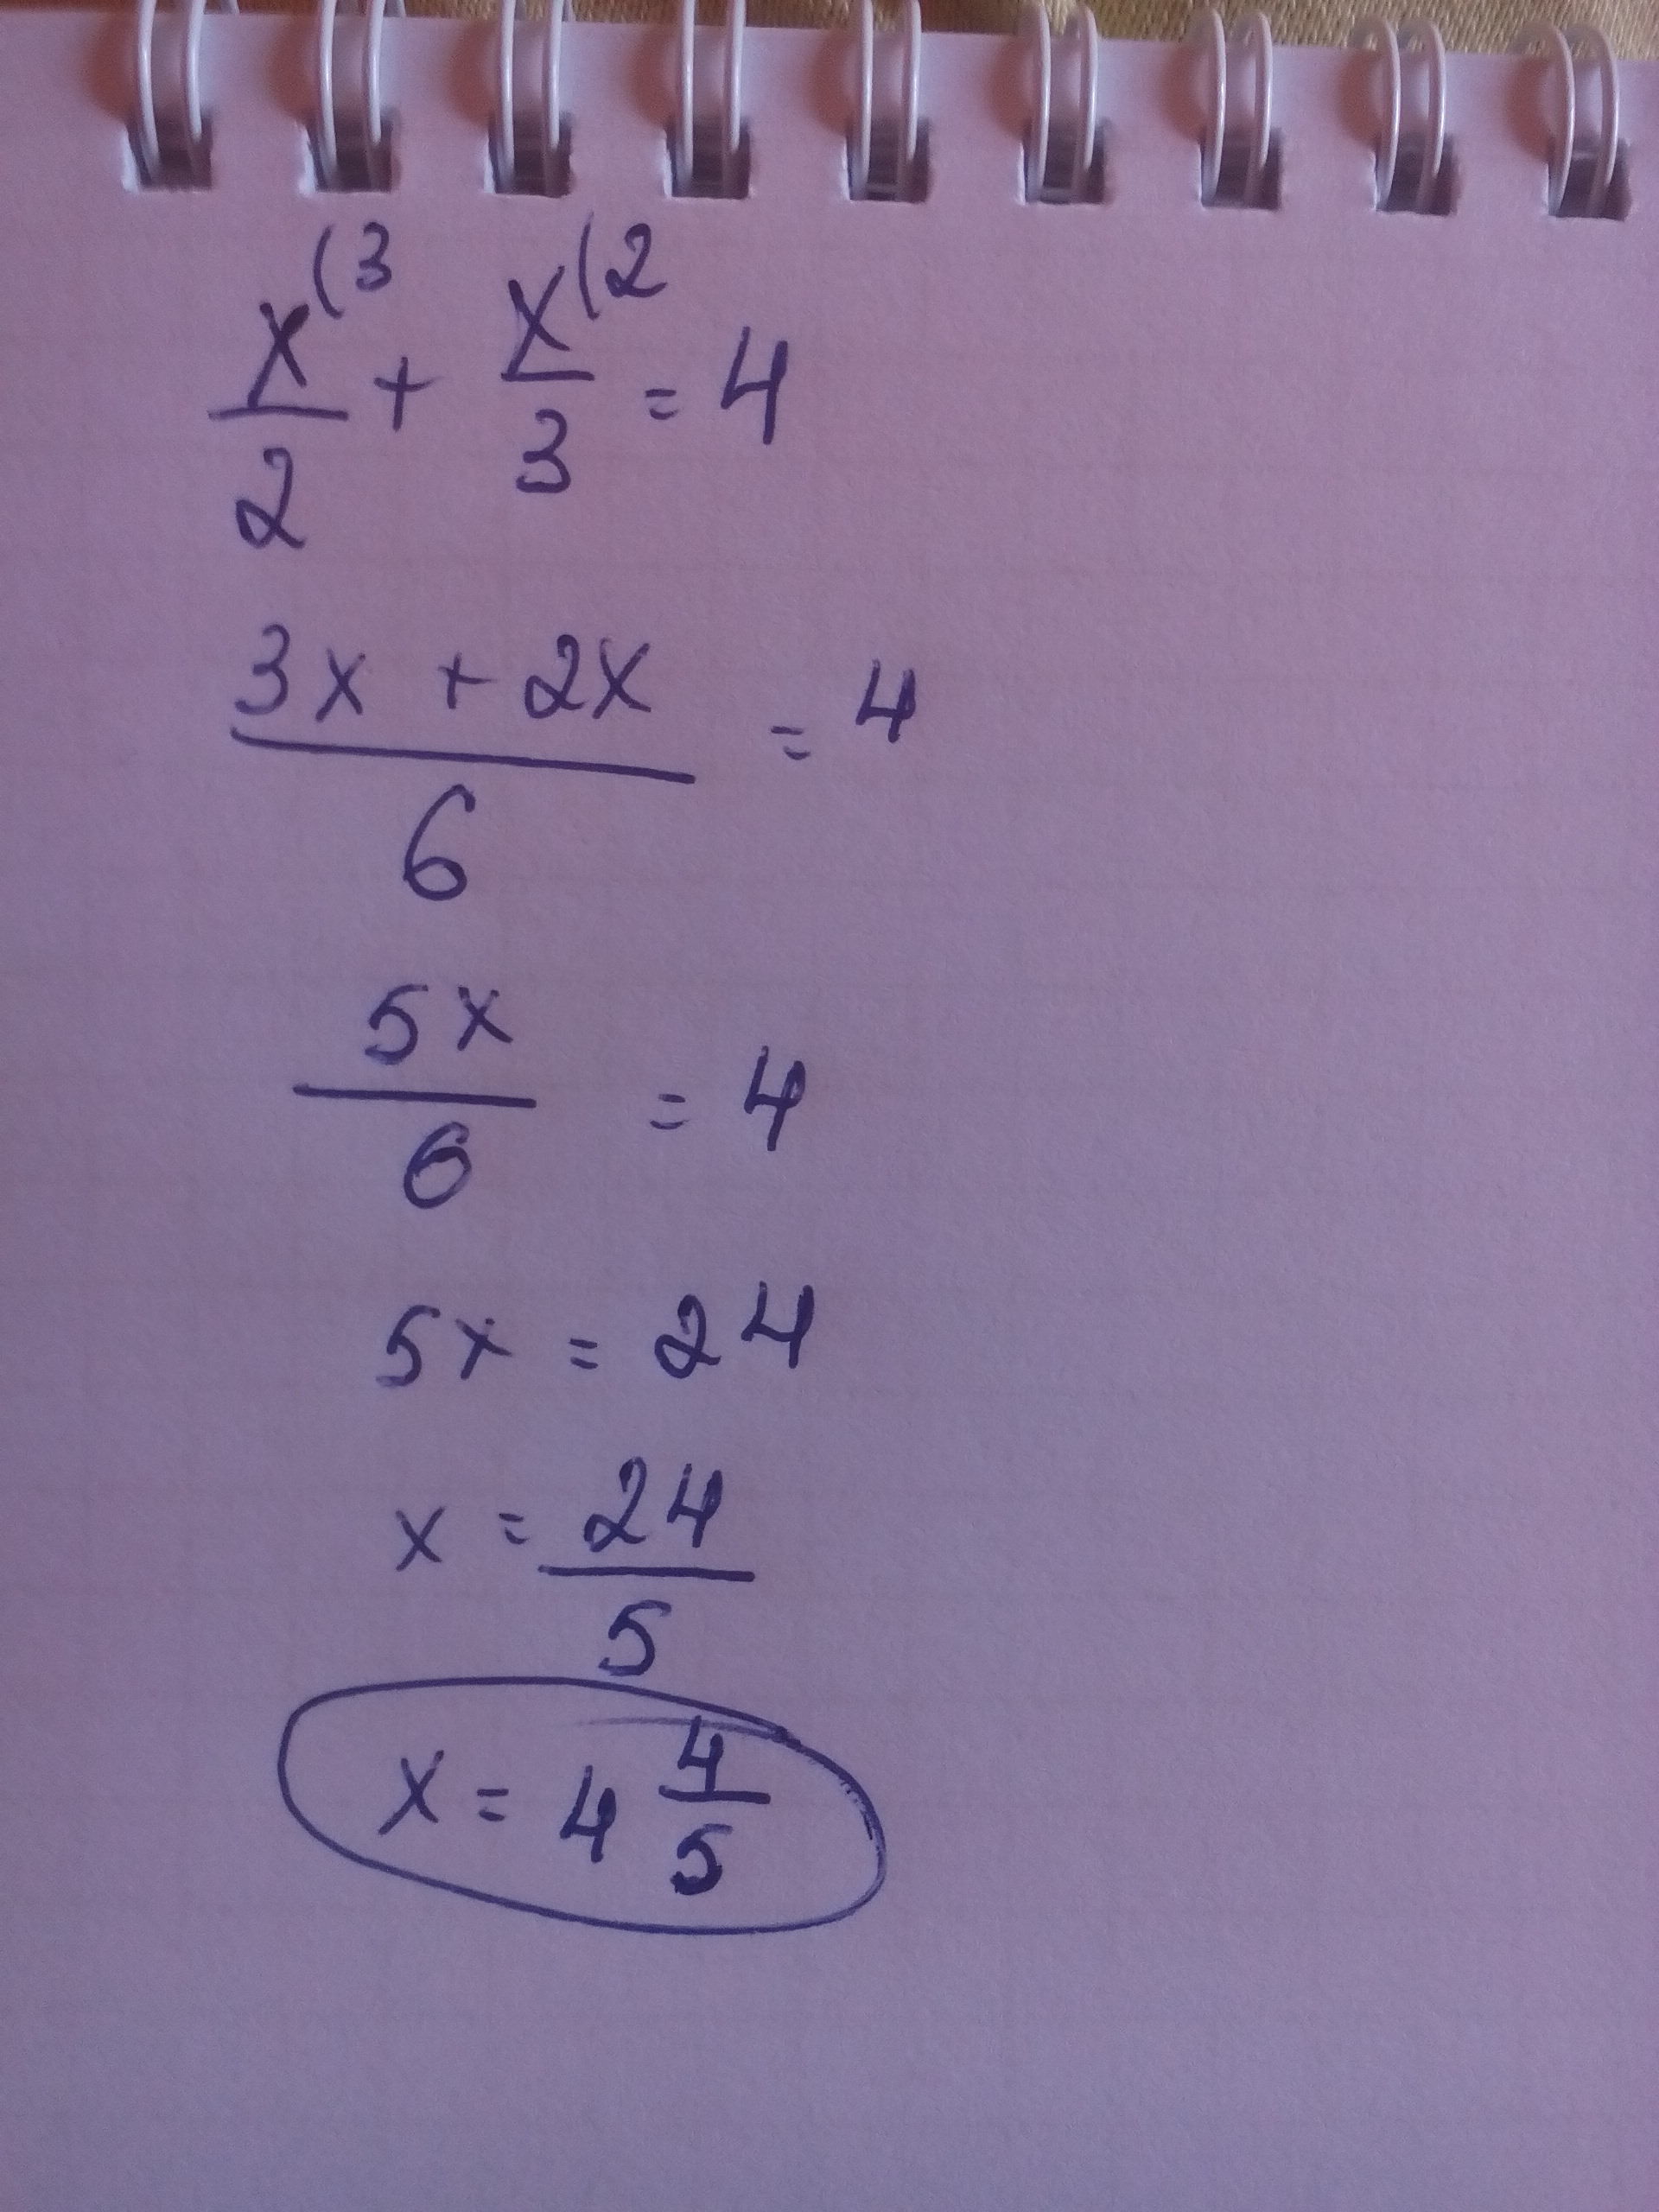 x/2 (3 + x/3 (2 = 4
3x + 2x / 6 = 4
5x / 6 = 4
5x = 24
x = 24/5
x = 4 4/5